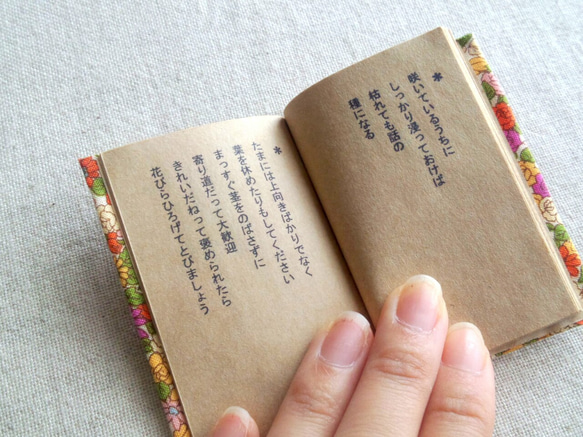 *
咲いているうちに
しっかり浸っておけば
枯れても話の
種になる
*
たまには上向きばかりでなく
葉を休めたりもしてください
まっすぐ茎をのばさずに
寄り道だって大歓迎
きれいだねって褒められたら
花びらひろげてとびましょう